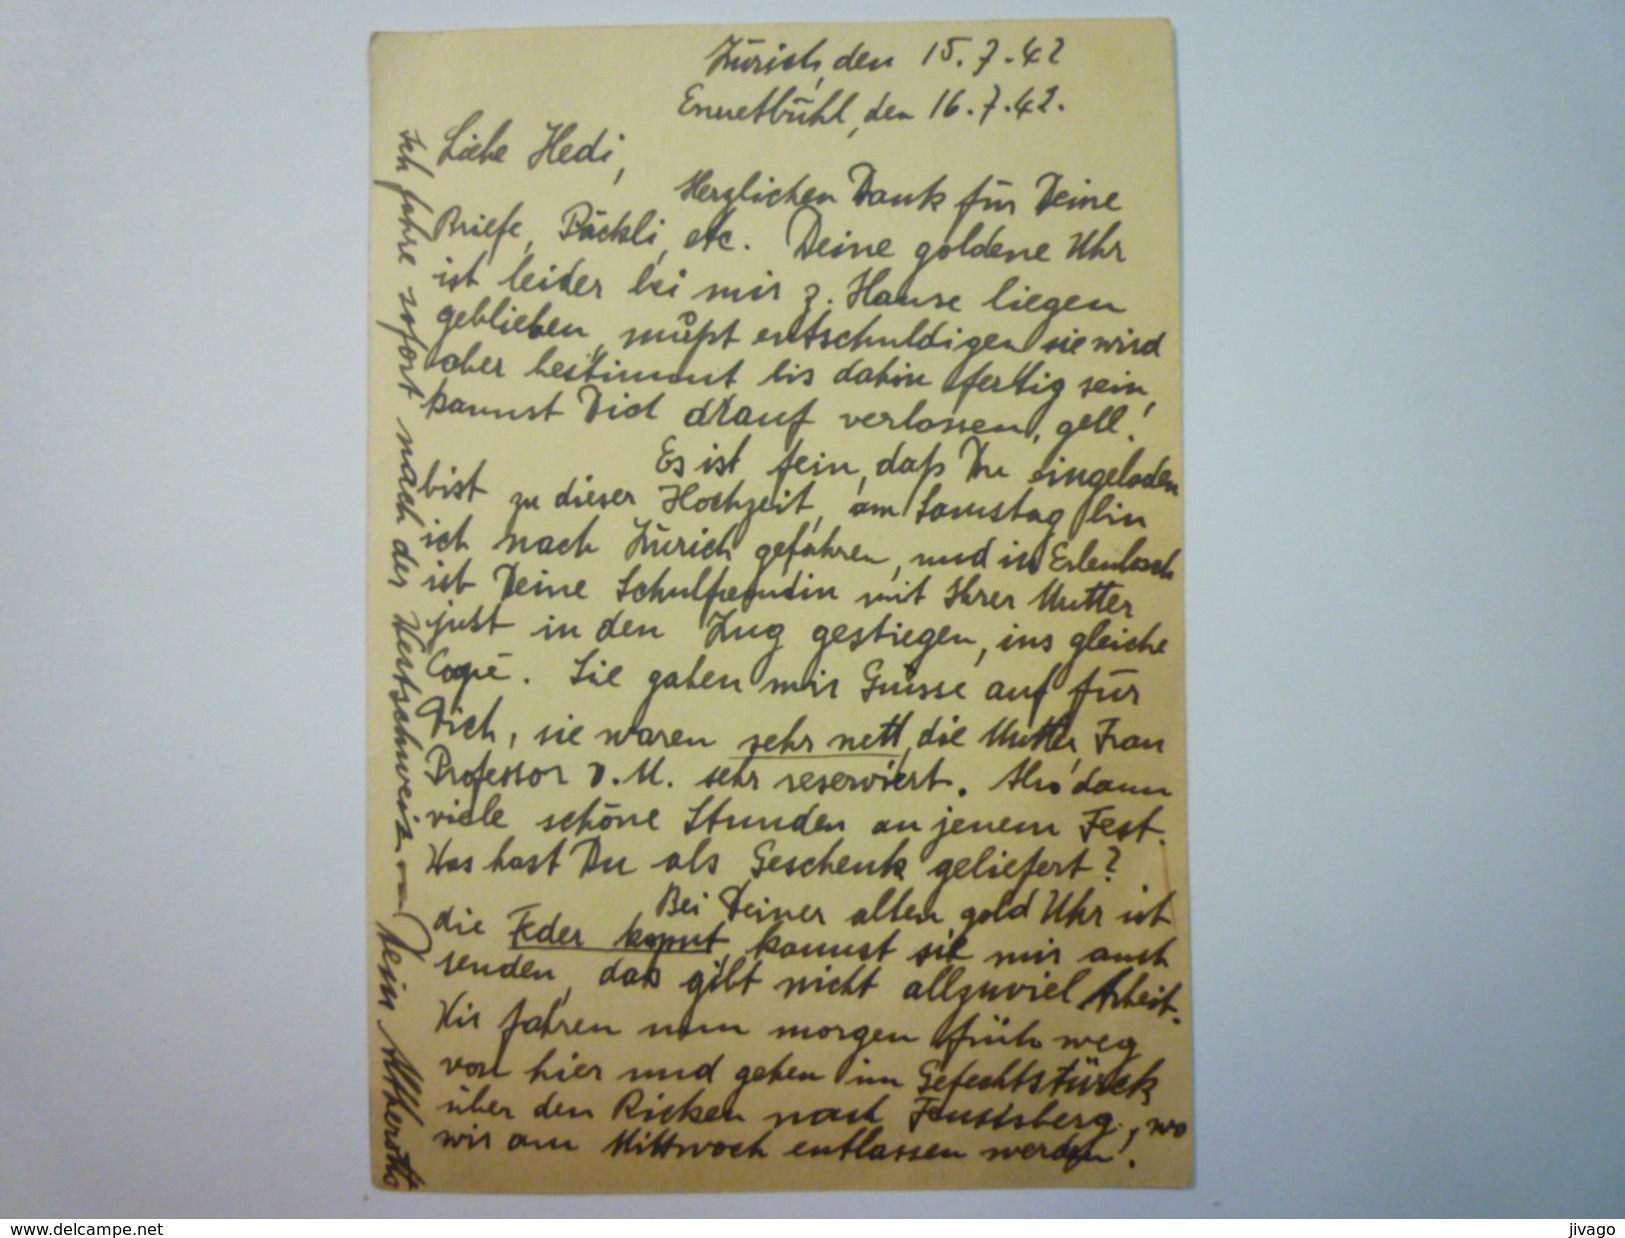 Zürich, den 15.7.42
Ennetbühl, den 16.7.42.
Liebe Hedi,
Herzlichen Dank für Deine
Briefe, Päckli, etc. Deine goldene Uhr
ist leider bei mir z. Hause liegen
geblieben, mußt entschuldigen sie wird
aber bestimmt bis dahin fertig sein,
kannst Dich drauf verlassen, gell.
Es ist fein, daß Du eingeladen
bist zu dieser Hochzeit, am Samstag bin
ich nach Zürich gefahren, und in Erlenbach
ist Deine Schulfreundin mit Ihrer Mutter
just in den Zug gestiegen, ins gleiche
Copé. Sie gaben mir Grüsse auf für
Dich, sie waren sehr nett, die Mutter, Frau
Professor v. M. sehr reserviert. Also dann
viele schöne Stunden an jenem Fest.
Was hast Du als Geschenk geliefert?
Bei Deiner alten gold Uhr ist
die Feder kaput, kannst sie mir auch
senden, das gibt nicht allzuviel Arbeit.
Wir fahren nun morgen früh weg
von hier und gehen im Gefechtstürck
über den Ricken nach Feusisberg, wo
wir am Mittwoch entlassen werden.
Ich fahre sofort nach der Westschweiz — Dein
www.delcampe.net
jivago